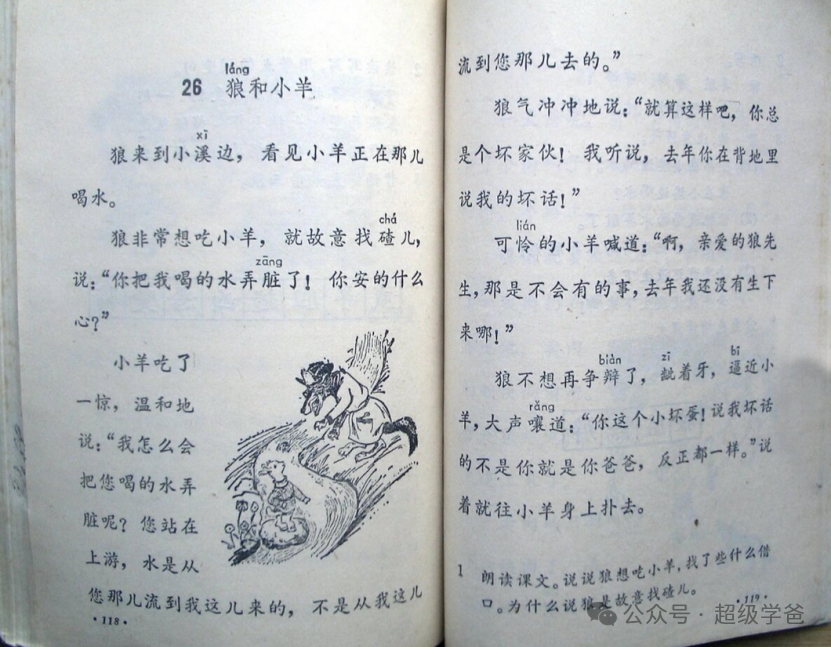 láng
26 狼和小羊
xī
狼来到小溪边，看见小羊正在那儿
喝水。
chá
狼非常想吃小羊，就故意找碴儿，
zāng
说：“你把我喝的水弄脏了！你安的什么
心？”
小羊吃了
一惊，温和地
说：“我怎么会
把您喝的水弄
脏呢？您站在
上游，水是从
您那儿流到我这儿来的，不是从我这儿
·118·
流到您那儿去的。”
狼气冲冲地说：“就算这样吧，你总
是个坏家伙！我听说，去年你在背地里
说我的坏话！”
lián
可怜的小羊喊道：“啊，亲爱的狼先
生，那是不会有的事，去年我还没有生下
来哪！”
biàn zī bī
狼不想再争辩了，龇着牙，逼近小
rǎng
羊，大声嚷道：“你这个小坏蛋！说我坏话
的不是你就是你爸爸，反正都一样。”说
着就往小羊身上扑去。
1 朗读课文。说说狼想吃小羊，找了些什么借
口。为什么说狼是故意找碴儿。
·119·
公众号·超级学爸